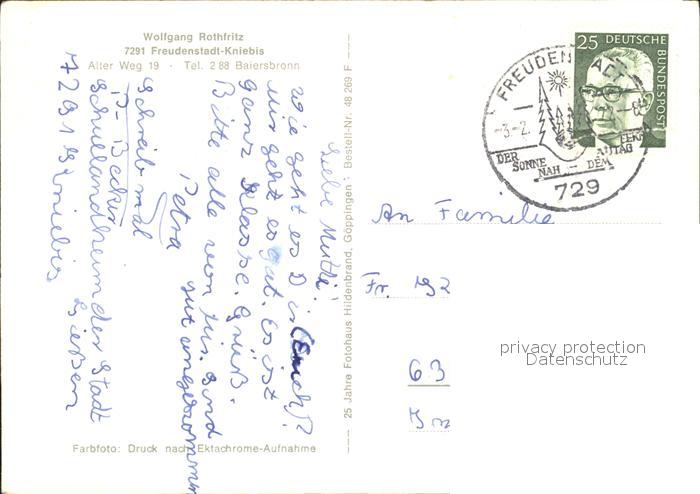 Wolfgang Rothfritz
7291 Freudenstadt-Kniebis
Alter Weg 19 · Tel. 2 88 Baiersbronn
Liebe Mutti!
Wie geht es Dir (Euch)?
Mir geht es gut. Es ist
ganz Klasse. Grüß
Bitte alle von mir. Sind
gut angekommen
Petra
Schreib mal
P. Becker
Schullandheim der Stadt
Gießen
7291 Kniebis
Farbfoto: Druck nach Ektachrome-Aufnahme
25 Jahre Fotohaus Hildenbrand, Göppingen · Bestell-Nr. 48 269 F
25 DEUTSCHE
BUNDESPOST
FREUDENSTADT
-3.-2.
DER
SONNE
NAH
DEM
729
An Familie
Fr.
63
privacy protection
Datenschutz